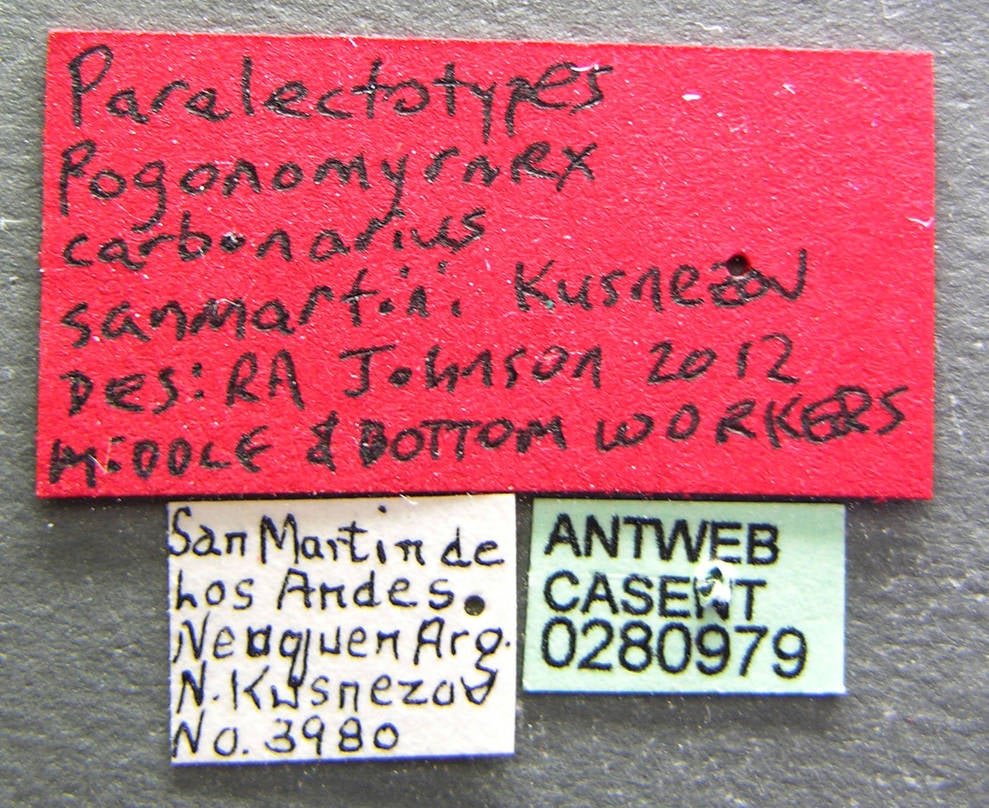 Paralectotypes
Pogonomyrmex
carbonarius
sanmartini Kusnezov
Des: RA Johnson 2012
MiDDLE & BOTTOM WORKERS
San Martin de
Los Andes.
Neuquen Arg.
N. Kusnezov
No. 3980
ANTWEB
CASENT
0280979